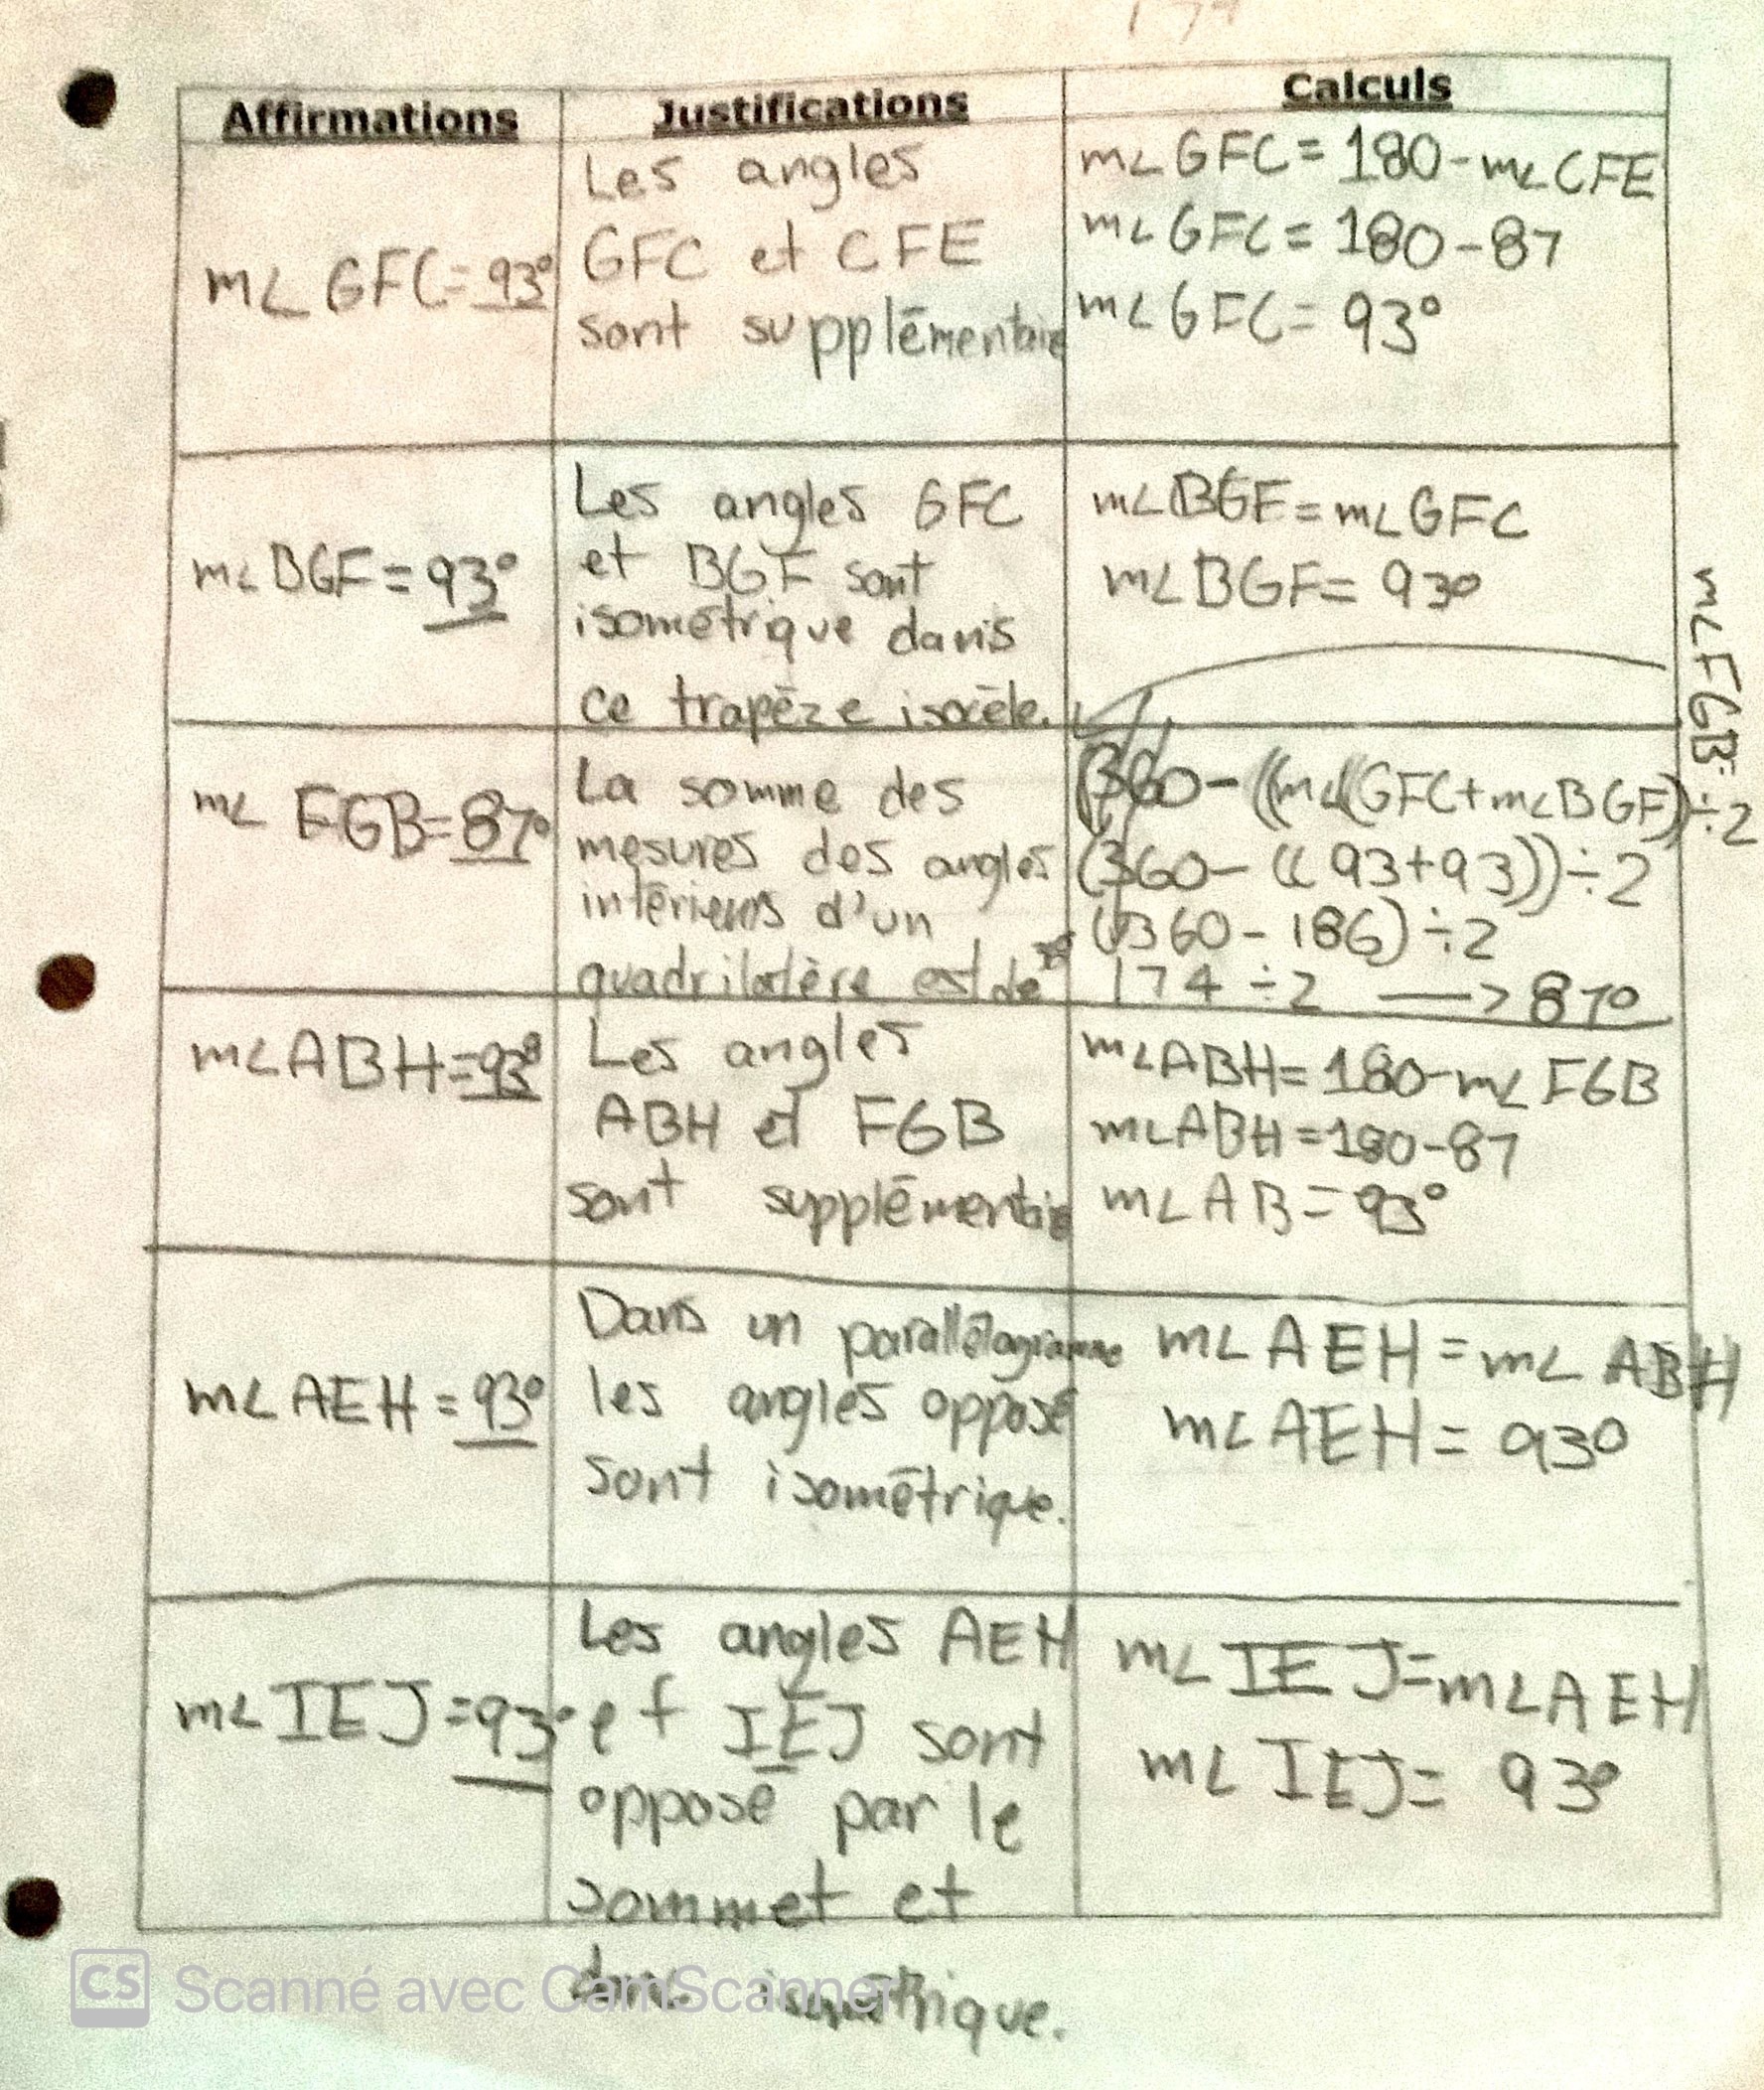 Affirmations
Justifications
Calculs
m∠ GFC = 93°
Les angles
GFC et CFE
sont supplémentaire
m∠ GFC = 180 - m∠ CFE
m∠ GFC = 180 - 87
m∠ GFC = 93°
m∠ BGF = 93°
Les angles GFC
et BGF sont
isométrique dans
ce trapèze isocèle.
m∠BGF = m∠GFC
m∠BGF = 93°
m∠ FGB = 87°
La somme des
mesures des angles
intérieurs d'un
quadrilatère est de
m∠FGB=
(360 - ((m∠(GFC + m∠BGF)) ÷ 2
(360 - ((93+93)) ÷ 2
(360 - 186) ÷ 2
174 ÷ 2 → 87°
m∠ABH = 93°
Les angles
ABH et FGB
sont supplémentaire
m∠ABH = 180 - m∠ FGB
m∠ABH = 180 - 87
m∠AB = 93°
m∠AEH = 93°
Dans un parallélogramme
les angles opposé
sont isométrique.
m∠ AEH = m∠ ABH
m∠AEH = 93°
m∠ IEJ = 93°
Les angles AEH
et IEJ sont
opposé par le
sommet et
donc isométrique.
m∠ IEJ = m∠AEH
m∠ IEJ = 93°
CS Scanné avec CamScanner